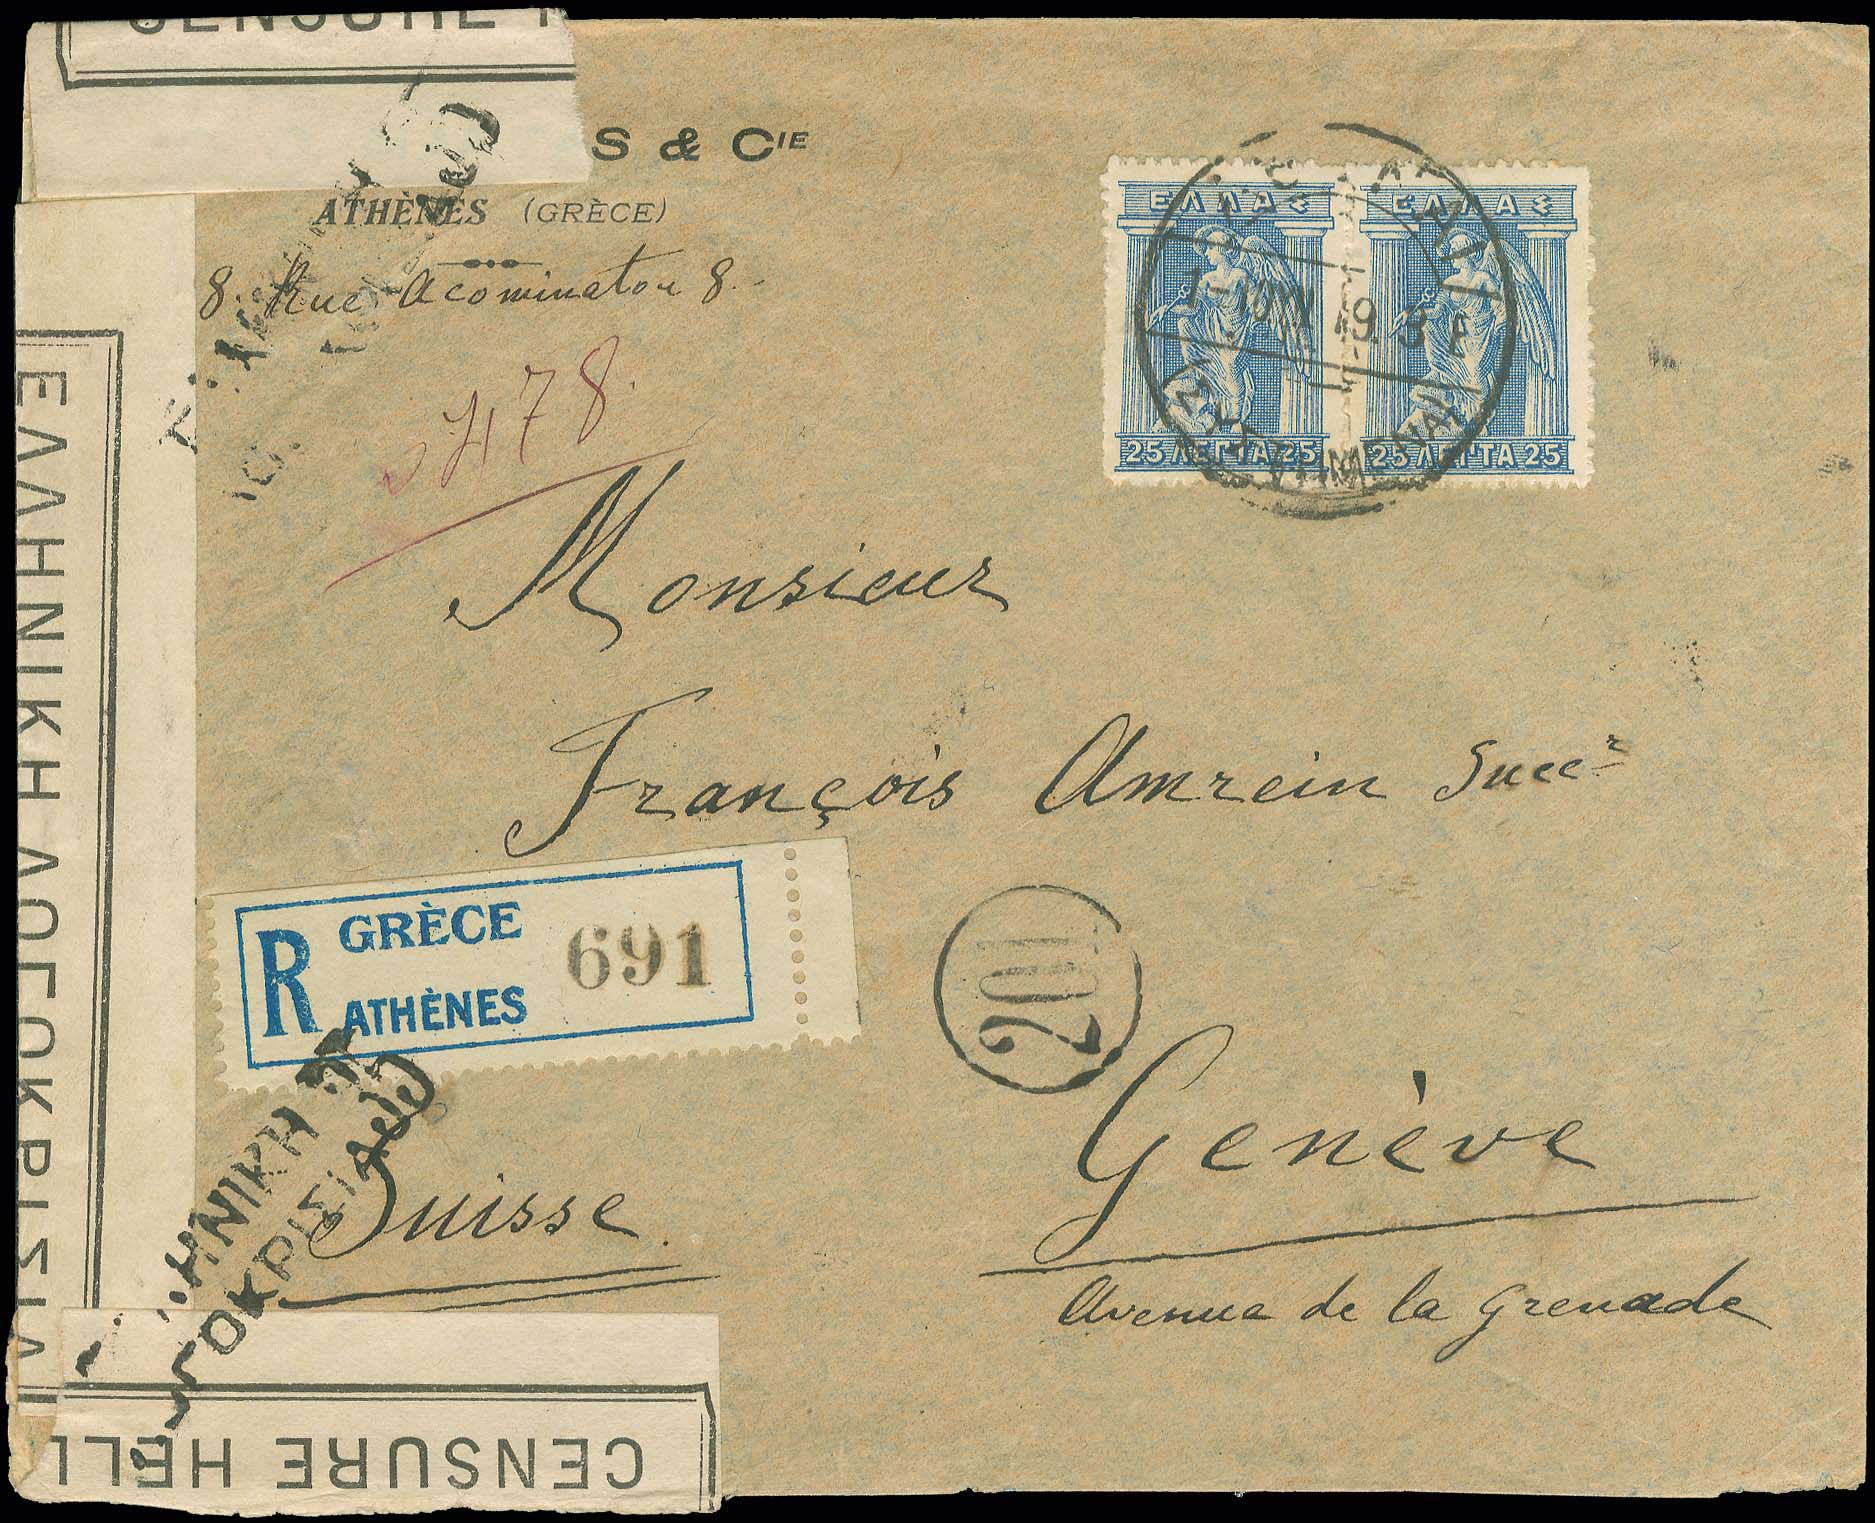 CENSURE
S & CIE
ATHÈNES (GRÈCE)
8. Rue Acominatou 8.
ΕΛΛΑΣ ΕΛΛΑΣ
25 ΛΕΠΤΑ 25 25 ΛΕΠΤΑ 25
478.
Monsieur
François Amrein Succr
R GRÈCE
ATHÈNES
691
201
Genève
Suisse.
Avenue de la Grenade
ΕΛΛΗΝΙΚΗ ΛΟΓΟΚΡΙΣΙΑ
ΗΝΙΚΗ
ΟΚΡΙΣΙΑ
CENSURE HELL